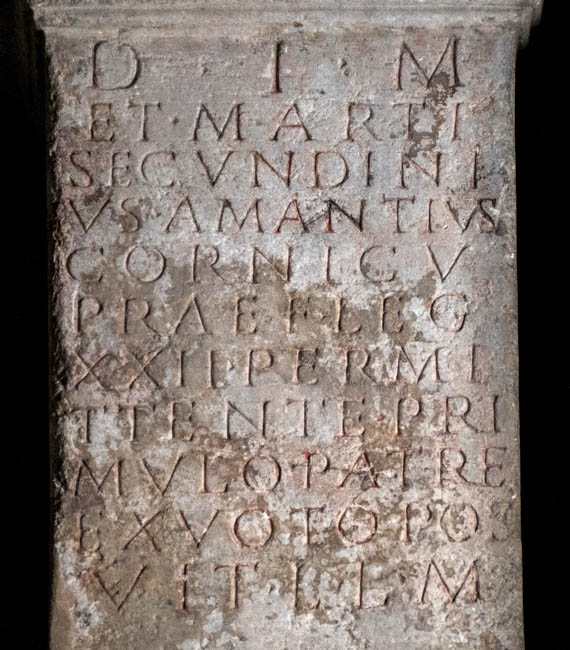 D I M
ET · MARTI
SECVNDINI
VS · AMANTIVS
CORNICV
PRAEF LEG
XXII · PERMI
TTENTE · PRI
MVLO · PATRE
EX VOTO POS
VIT · L L M